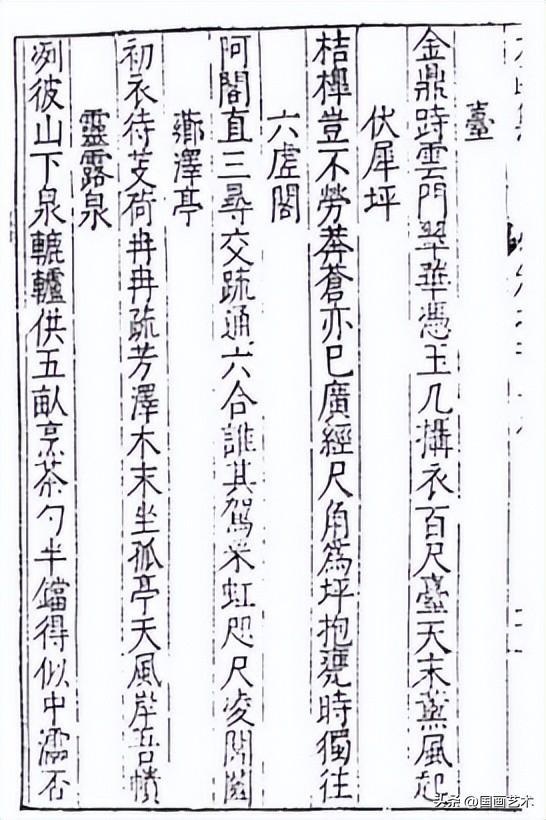 臺
金鼎跱雲門翠華憑玉几攝衣百尺臺天末薰風起
伏犀坪
桔橰豈不勞莽蒼亦已廣經尺角為坪抱甕時獨往
六虛閣
阿閣直三尋交疏通六合誰其駕采虹咫尺凌閶闔
薌澤亭
初衣待芰荷冉冉疏芳澤木末坐孤亭天風岸吾幘
靈露泉
冽彼山下泉轆轤供五畝烹茶勺半鐺得似中濡否
头条 @国画艺术